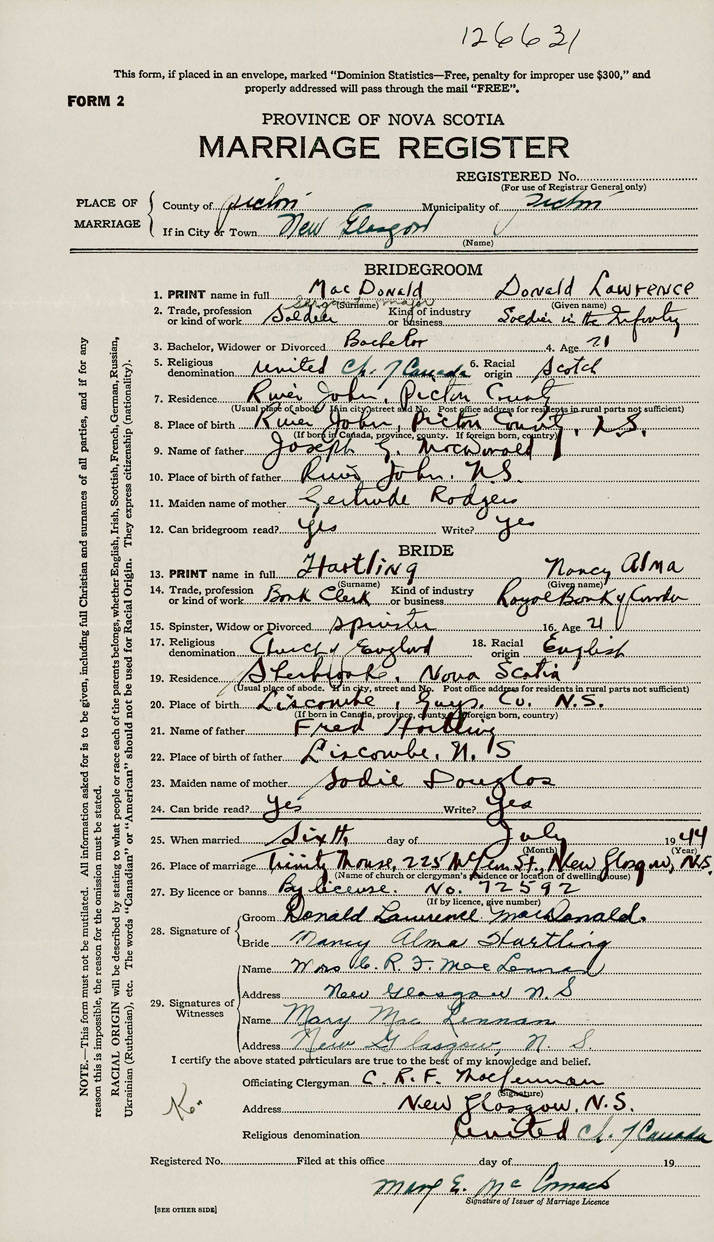 126631
This form, if placed in an envelope, marked "Dominion Statistics—Free, penalty for improper use $300," and
properly addressed will pass through the mail "FREE".
FORM 2
PROVINCE OF NOVA SCOTIA
MARRIAGE REGISTER
REGISTERED No.
(For use of Registrar General only)
PLACE OF MARRIAGE
County of Pictou Municipality of Pictou
If in City or Town New Glasgow
(Name)
BRIDEGROOM
1. PRINT name in full MacDonald Donald Lawrence
(Surname) (Given name)
major
2. Trade, profession or kind of work Soldier Kind of industry or business Soldier in the Infantry
3. Bachelor, Widower or Divorced Bachelor 4. Age 21
5. Religious denomination United Ch. of Canada 6. Racial origin Scotch
7. Residence River John, Pictou County
(Usual place of abode. If in city, street and No. Post office address for residents in rural parts not sufficient)
8. Place of birth River John, Pictou County, N.S.
(If born in Canada, province, county. If foreign born, country)
9. Name of father Joseph G. MacDonald
10. Place of birth of father River John, N.S.
11. Maiden name of mother Gertrude Rodgers
12. Can bridegroom read? Yes Write? Yes
BRIDE
13. PRINT name in full Hartling Nancy Alma
(Surname) (Given name)
14. Trade, profession or kind of work Bank Clerk Kind of industry or business Royal Bank of Canada
15. Spinster, Widow or Divorced Spinster 16. Age 21
17. Religious denomination Church of England 18. Racial origin English
19. Residence Sherbrooke, Nova Scotia
(Usual place of abode. If in city, street and No. Post office address for residents in rural parts not sufficient)
20. Place of birth Liscombe, Guys. Co. N.S.
(If born in Canada, province, county. If foreign born, country)
21. Name of father Fred Hartling
22. Place of birth of father Liscombe, N.S
23. Maiden name of mother Sadie Douglas
24. Can bride read? Yes Write? Yes
25. When married Sixth day of July 1944
(Month) (Year)
26. Place of marriage Trinity Manse, 225 St., New Glasgow, N.S.
(Name of church or clergyman's residence or location of dwelling house)
27. By licence or banns By license. No. 72592
(If by licence, give number)
28. Signature of
Groom Donald Lawrence MacDonald.
Bride Nancy Alma Hartling
29. Signatures of Witnesses
Name Mrs C. R. F. MacLennan
Address New Glasgow N S
Name Mary MacLennan
Address New Glasgow, N. S.
I certify the above stated particulars are true to the best of my knowledge and belief.
Officiating Clergyman C. R. F. MacLennan
(Signature)
Address New Glasgow, N.S.
Religious denomination United Ch. of Canada
Registered No. Filed at this office day of 19
Mary E. McCormack
Signature of Issuer of Marriage Licence
[SEE OTHER SIDE]
NOTE.—This form must not be mutilated. All information asked for is to be given, including full Christian and surnames of all parties, and if for any
reason this is impossible, the reason for the omission must be stated.
RACIAL ORIGIN will be described by stating to what people or race each of the parents belongs, whether English, Irish, Scottish, French, German, Russian,
Ukrainian (Ruthenian), etc. The words "Canadian" or "American" should not be used for Racial Origin. They express citizenship (nationality).